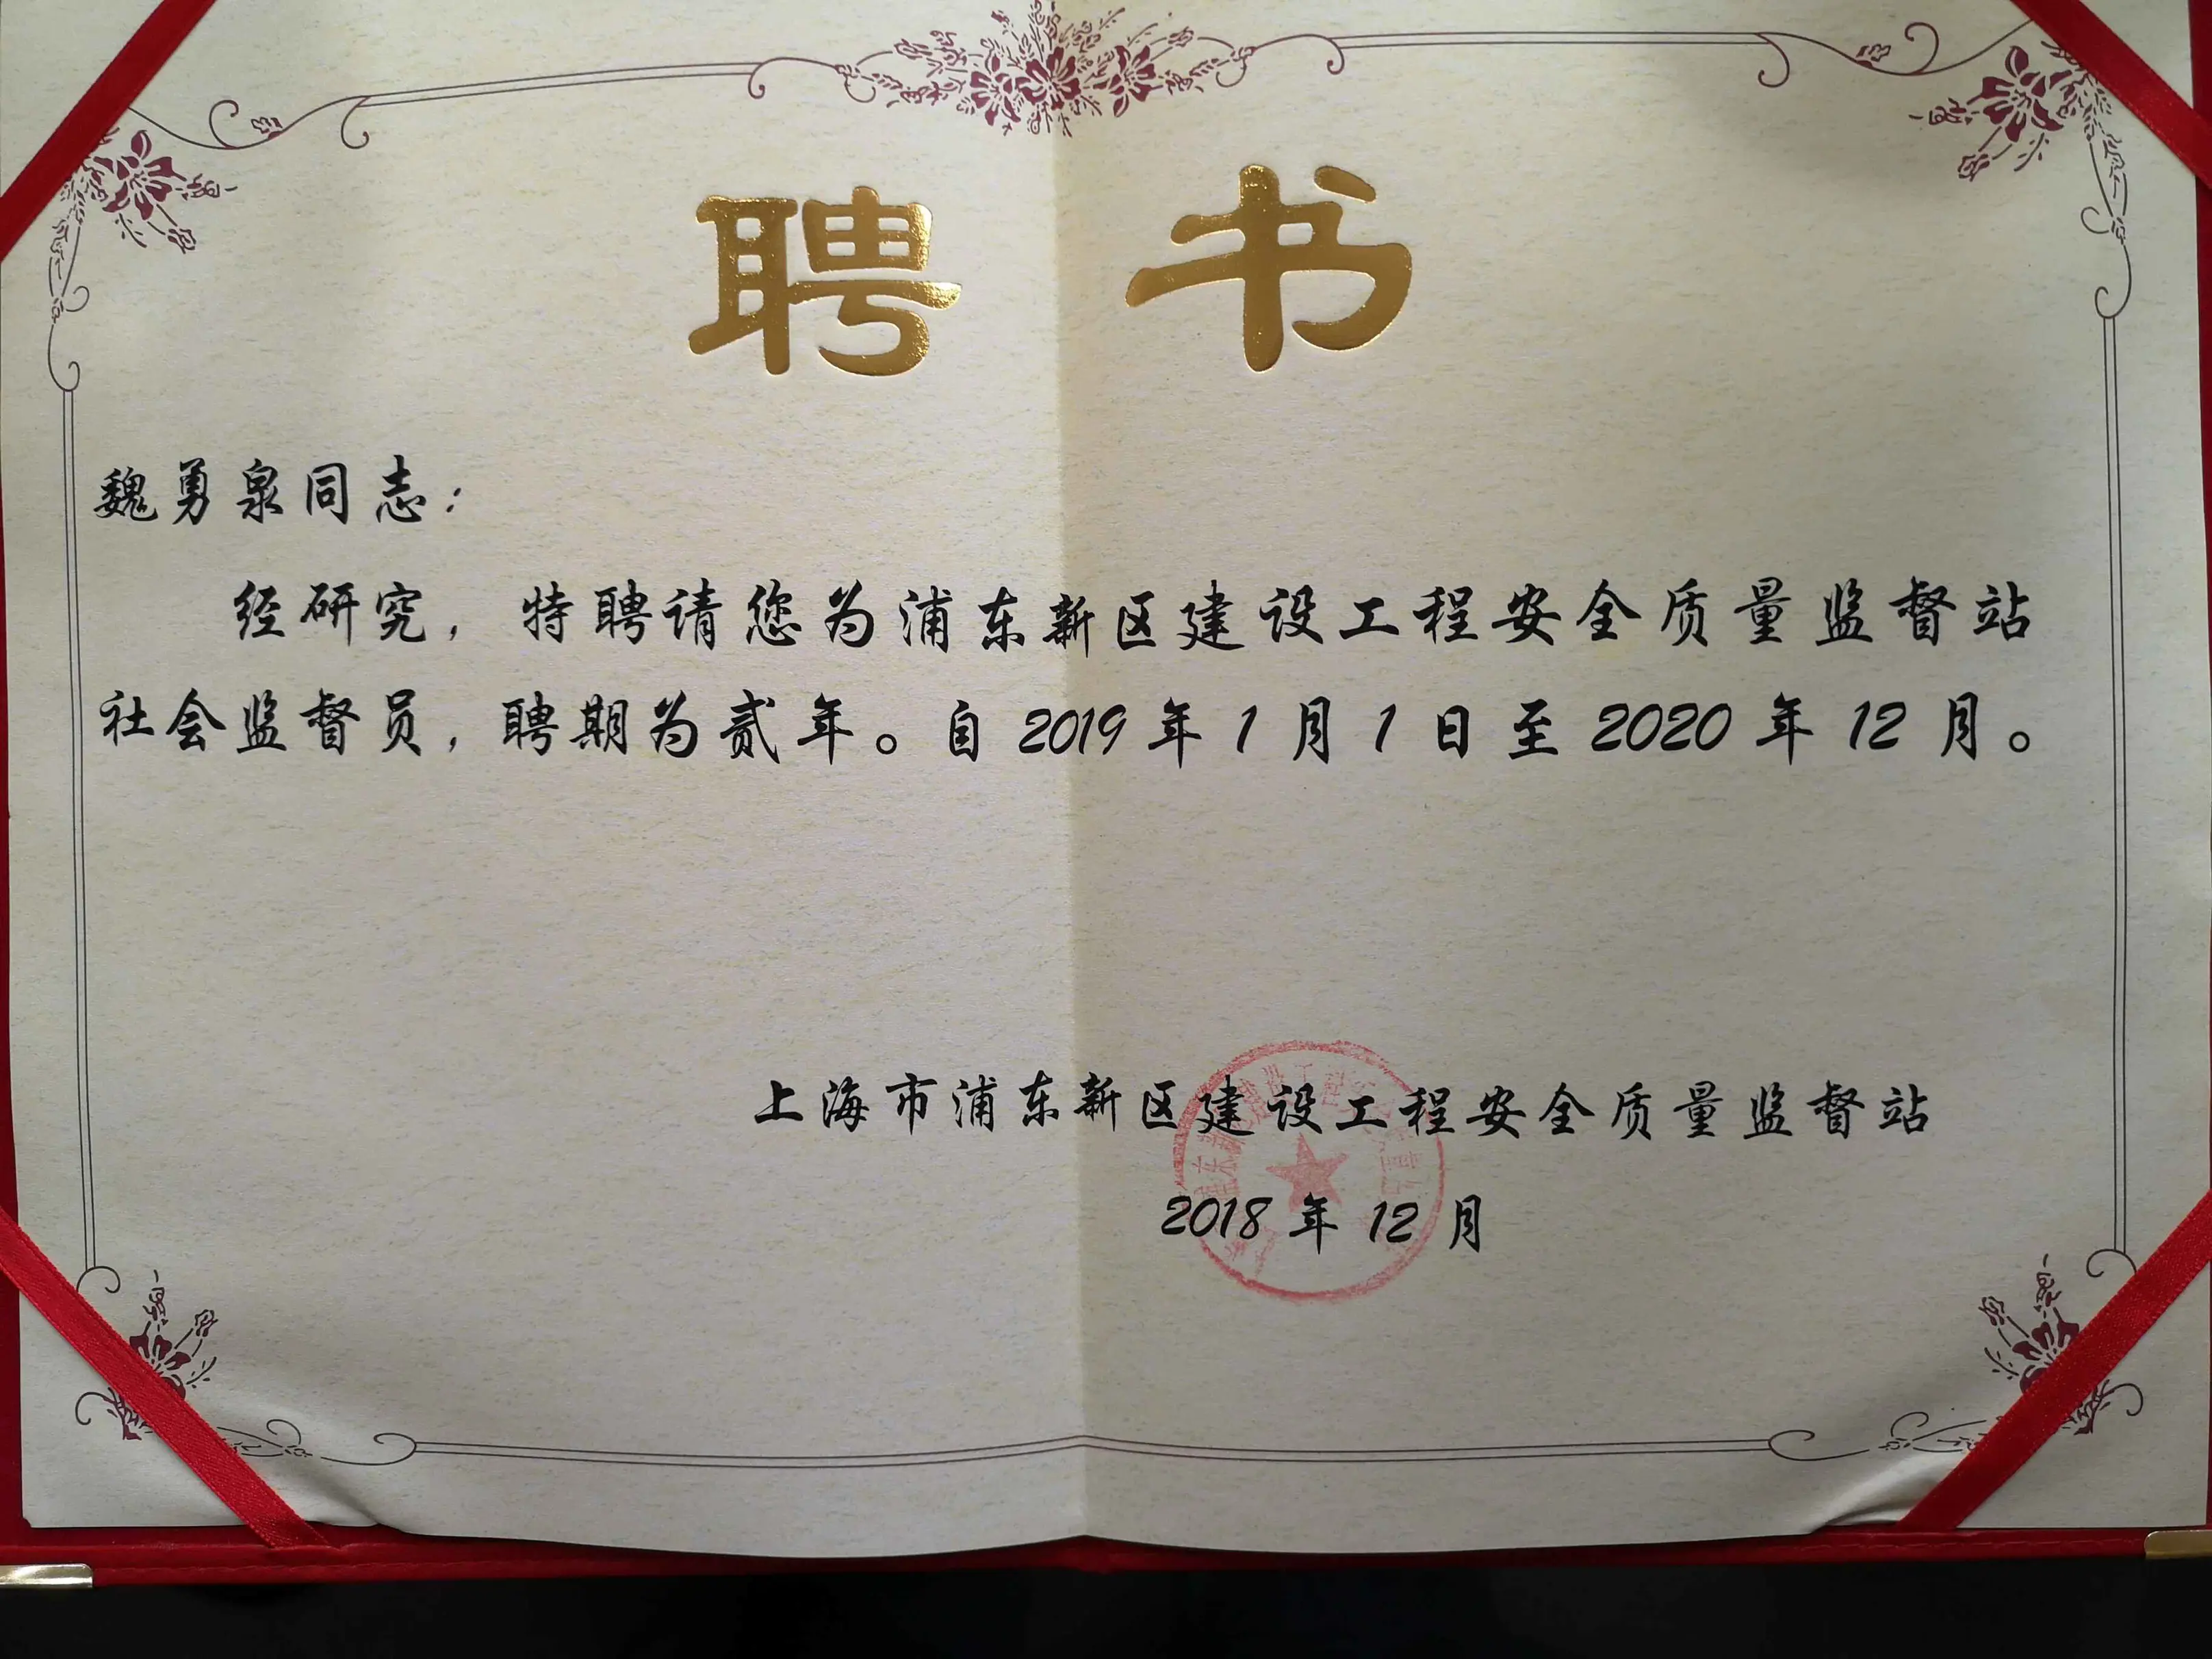 聘书
魏勇泉同志：
经研究，特聘请您为浦东新区建设工程安全质量监督站
社会监督员，聘期为贰年。自 2019 年 1 月 1 日至 2020 年 12 月。
上海市浦东新区建设工程安全质量监督站
2018 年 12 月